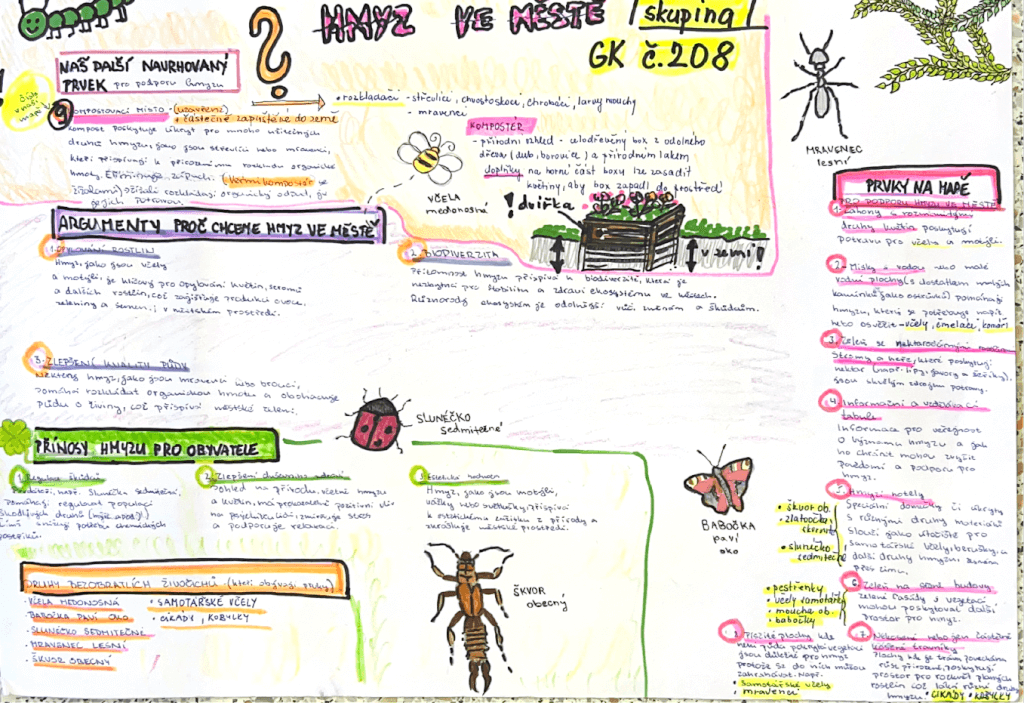 HMYZ VE MĚSTĚ
skupina
GK č.208
NÁŠ DALŠÍ NAVRHOVANÝ
PRVEK pro podporu hmyzu
9
KOMPOSTOVACÍ MÍSTO - (uzavřené)
* částečně zapuštěné do země
kompost poskytuje úkryt pro mnoho užitečných
druhů hmyzu, jako jsou
kteří přispívají k přirozenému rozkladu organické
hmoty.
(žížalami) organický odpad,
jejich potravou.
• rozkladači - střevlíci, chvostoskoci, chrobáci, larvy mouchy
- mravenci
KOMPOSTÉR
- přírodní vzhled - celodřevěný box z odolného
dřeva (dub, borovice) a přírodním lakem
doplňky na horní část boxu lze zasadit
květiny, aby box zapadl do prostředí
VČELA
medonosná
! dvířka
v zemi!
MRAVENEC
lesní
ARGUMENTY PROČ CHCEME HMYZ VE MĚSTĚ
1. OPYLOVÁNÍ ROSTLIN
Hmyz, jako jsou včely
a motýli, je klíčový pro opylování květin, stromů
a dalších rostlin, což zajišťuje produkci ovoce,
zeleniny a semen i v městském prostředí.
2. BIODIVERZITA
Přítomnost hmyzu přispívá k biodiverzitě, která je
nezbytná pro stabilitu a zdraví ekosystému ve městech.
Různorodý ekosystém je odolnější vůči změnám a škůdcům.
3. ZLEPŠENÍ KVALITY PŮDY
Některý hmyz, jako jsou mravenci nebo brouci,
pomáhá rozkládat organickou hmotu a obohacuje
půdu o živiny, což přispívá městské zeleni.
SLUNÉČKO
sedmitečné
PŘÍNOSY HMYZU PRO OBYVATELE
1. Regulace škůdců
Predátoři, např. slunéčka sedmitečná,
pomáhají regulovat populaci
škodlivých druhů
snižují potřebu chemických
2. Zlepšení duševního zdraví
Pohled na přírodu, včetně hmyzu
a květin, má prokazatelně pozitivní vliv
na psychiku lidí, zmírňuje stres
a podporuje relaxaci.
3. Estetická hodnota
Hmyz, jako jsou motýli,
vážky nebo světlušky, přispívá
k estetickému zážitku z přírody a
zkrášluje městské prostředí.
DRUHY BEZOBRATLÍCH ŽIVOČICHŮ (kteří obývají prvky)
• VČELA MEDONOSNÁ
• BABOČKA PAVÍ OKO
• SLUNÉČKO SEDMITEČNÉ
• MRAVENEC LESNÍ
• ŠKVOR OBECNÝ
• SAMOTÁŘSKÉ VČELY
• CIKÁDY, KOBYLKY
ŠKVOR
obecný
BABOČKA
paví
oko
PRVKY NA MAPĚ
PRO PODPORU HMYZU VE MĚSTĚ
1. Záhony s rozmanitými
druhy květin poskytují
potravu pro včely a motýli.
2. Misky s vodou nebo malé
vodní plochy (s dostatkem malých
kamínků jako ostrůvků) pomáhají
hmyzu, který se potřebuje napít
nebo osvěžit - včely, čmeláci, komáři
3. Zeleň se nektarodárnými
Stromy a keře, které poskytují
nektar (např. lípy, javory a šeříky),
jsou skvělým zdrojem potravy.
4. Informační a vzdělávací
tabule
Informace pro veřejnost
o významu hmyzu a jak
ho chránit mohou zvýšit
povědomí a podporu pro
hmyz.
5. Hmyzí hotely
Speciální domečky či úkryty
s různými druhy materiálů
slouží jako útočiště pro
samotářské včely, berušky, a
další druhy hmyzu
přes zimu.
• škvor ob.
• zlatoočka
• slunéčko
sedmitečné
6. Zeleň na zdně budovy
zelené fasády s vegetací
mohou poskytovat další
prostor pro hmyz.
• pestřenky
• včely samotářky
• moucha ob.
• babočky
7. Nekosené nebo jen částečně
kosené trávníky
Plochy kde je trávu ponechána
růst přirozeně, poskytují
prostor pro rozkvět planých
rostlin což láká různé druhy
hmyzu. • CIKÁDY • KOBYLKY
8. Písčité plochy kde
není půda pokrytá vegetací
jsou důležité pro hmyz
protože se do nich můžou
zahrabávat. Např.
• Samotářské včely
mravenci